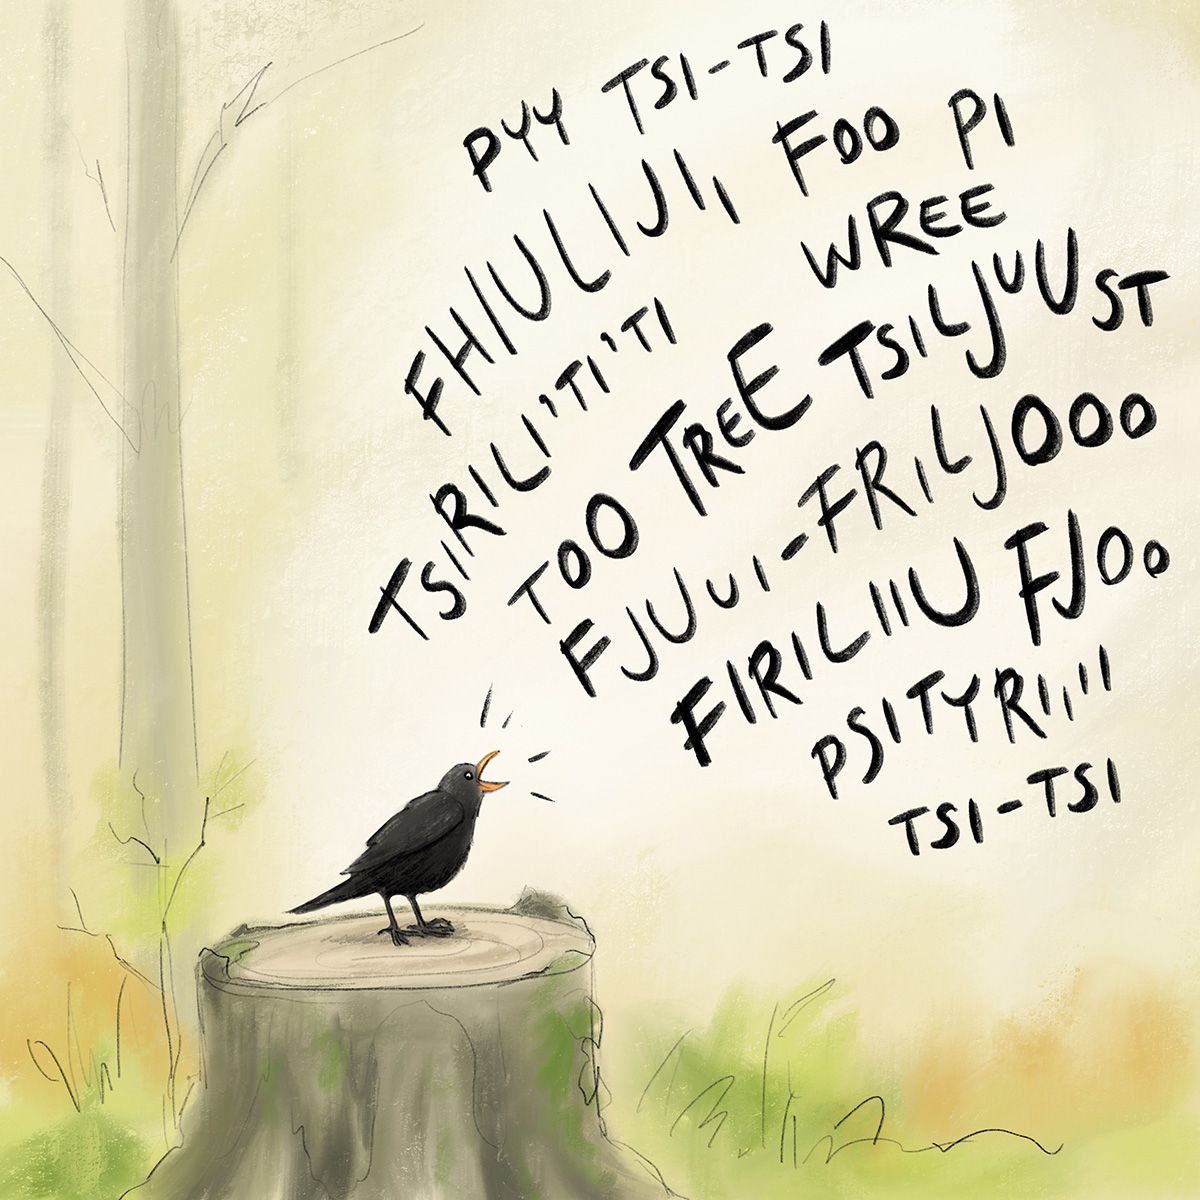 PYY TSI-TSI
FHIULIJI,, FOO PI
WREE
TSIRILI'TI'TI
TOO TREE TSILJUUST
FJUUI-FRILJOOO
FIRILIIU FJOO
PSITYRIIII
TSI-TSI